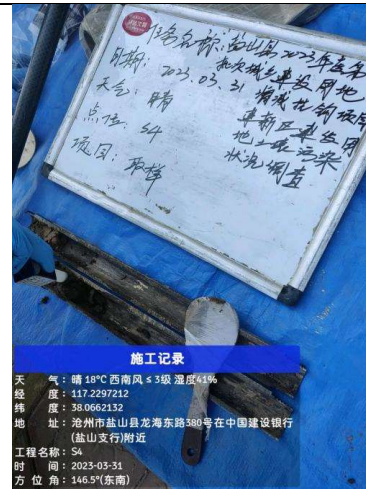 任务名称:盐山县2023年度第
批次城乡建设用地
日期:2023.03.31 增减挂钩项目
天气:晴 建新区
地土壤污染
点位:S4 状况调查
项目:取样
施工记录
天 气:晴 18℃ 西南风 ≤ 3级 湿度41%
经 度:117.2297212
纬 度:38.0662132
地 址:沧州市盐山县龙海东路380号在中国建设银行
(盐山支行)附近
工程名称:S4
时 间:2023-03-31
方 位 角:146.5°(东南)